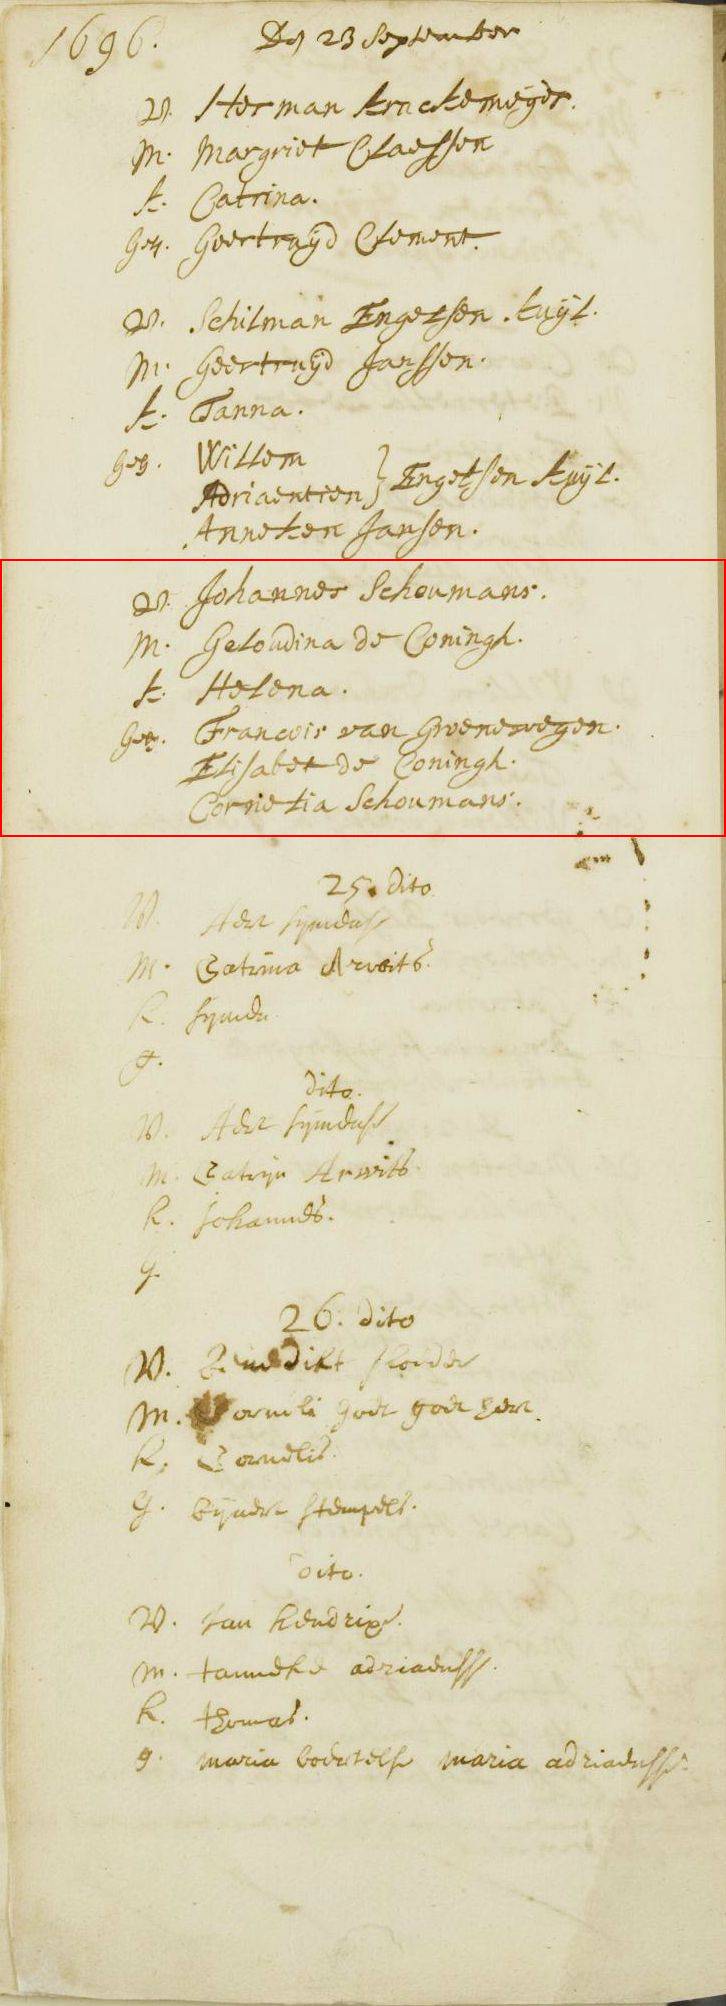 1696. Den 23 September
V. Herman Kruckemeyer.
M. Margriet Claessen
K. Catrina.
Get. Geertruyd Clement.
V. Schilman Engelsen Kuyl.
M. Geertruyd Janssen.
K. Tanna.
Get. Willem
Adriaentien } Engelsen Kuyl.
Anneken Jansen.
V. Johannes Schoumans.
M. Geloudina de Coningh.
K. Helena.
Get. Francois van Groenewegen.
Elisabet de Coningh.
Cornelia Schoumans.
25. dito
V. Aert
M. Catrina Arvoits
K.
G.
dito.
V. Aert
M. Catrijn Arwits.
K. Johannes.
G.
26. dito
V. Benedikt
M.
K. Cornelis.
G. stempels.
dito.
V. Jan hendrixs.
M. tanneke adriaenss.
K. thomas.
G. maria maria adriaenss